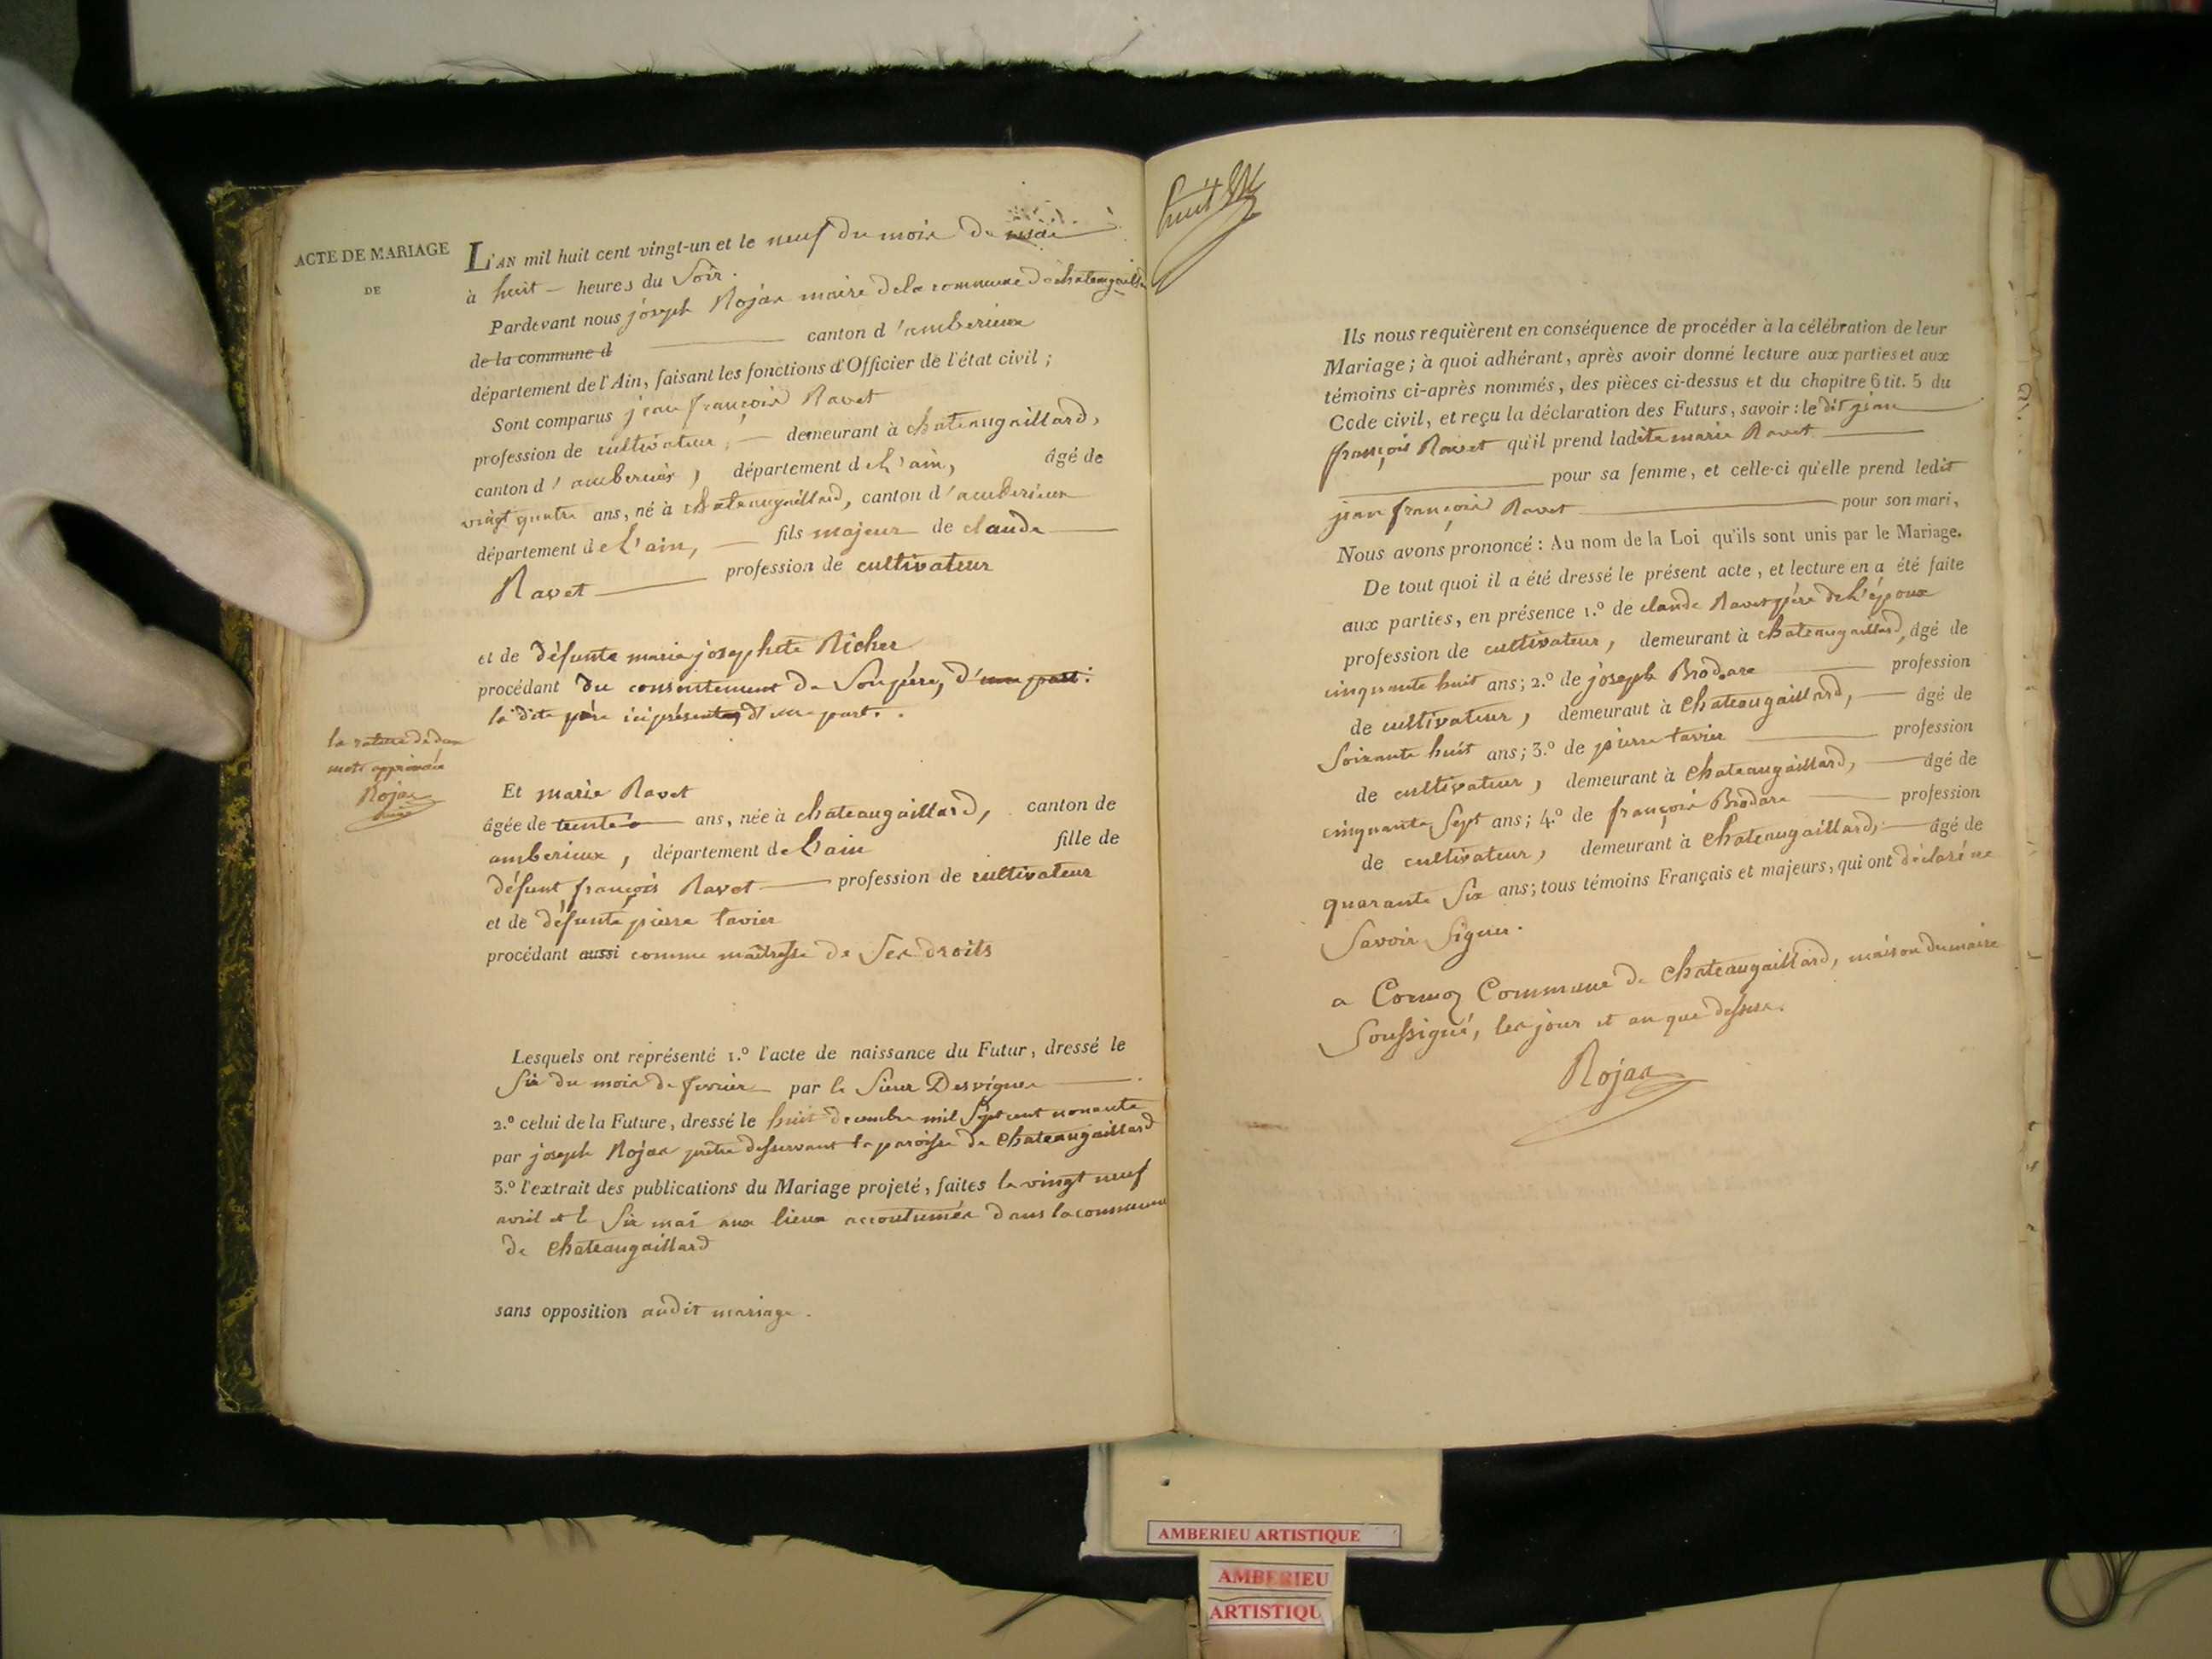 ACTE DE MARIAGE
DE
L'AN mil huit cent vingt-un et le neuf du mois de mai
à huit heures du Soir.
Pardevant nous joseph Rojan maire de la commune de chateaugaillard
de la commune d canton d'amberieux
département de l'Ain, faisant les fonctions d'Officier de l'état civil ;
Sont comparus jean françois Ravet
profession de cultivateur, demeurant à chateaugaillard,
canton d'amberieux, département de L'ain, âgé de
vingt quatre ans, né à chateaugaillard, canton d'amberieux
département de L'ain, fils majeur de claude
Ravet profession de cultivateur
et de défunte marie josephete Richer
procédant du consentement de Son père, d'une part.
le dit père ici présent, d'une part.
la rature de deux
mots approuvée
Rojan
maire
Et marie Ravet
âgée de trente ans, née à chateaugaillard, canton de
amberieux, département de L'ain fille de
défunt françois Ravet profession de cultivateur
et de défunte pierre tavier
procédant aussi comme maîtresse de Ses droits
Lesquels ont représenté 1.º l'acte de naissance du Futur, dressé le
Six du mois de fevrier par le Sieur Desvignes
2.º celui de la Future, dressé le huit decembre mil Sept cent nonante
par joseph Rojan prêtre desservant la paroisse de chateaugaillard
3.º l'extrait des publications du Mariage projeté, faites le vingt neuf
avril et le Six mai aux lieux accoutumés dans la commune
de chateaugaillard
sans opposition audit mariage.
huit
Ils nous requièrent en conséquence de procéder à la célébration de leur
Mariage ; à quoi adhérant, après avoir donné lecture aux parties et aux
témoins ci-après nommés, des pièces ci-dessus et du chapitre 6 tit. 5 du
Code civil, et reçu la déclaration des Futurs, savoir : le dit jean
françois Ravet qu'il prend ladite marie Ravet
pour sa femme, et celle-ci qu'elle prend ledit
jean françois Ravet pour son mari,
Nous avons prononcé : Au nom de la Loi qu'ils sont unis par le Mariage.
De tout quoi il a été dressé le présent acte, et lecture en a été faite
aux parties, en présence 1.º de claude Ravet père de L'époux
profession de cultivateur, demeurant à chateaugaillard, âgé de
cinquante huit ans ; 2.º de joseph Brodare profession
de cultivateur, demeurant à chateaugaillard, âgé de
Soixante huit ans ; 3.º de pierre tavier profession
de cultivateur, demeurant à chateaugaillard, âgé de
cinquante Sept ans ; 4.º de françois Brodare profession
de cultivateur, demeurant à chateaugaillard, âgé de
quarante Six ans ; tous témoins Français et majeurs, qui ont déclaré ne
Savoir Signer.
a Cormoz Commune de chateaugaillard, maison du maire
Soussigné, les jour et an que dessus.
Rojan
AMBERIEU ARTISTIQUE
AMBERIEU
ARTISTIQU